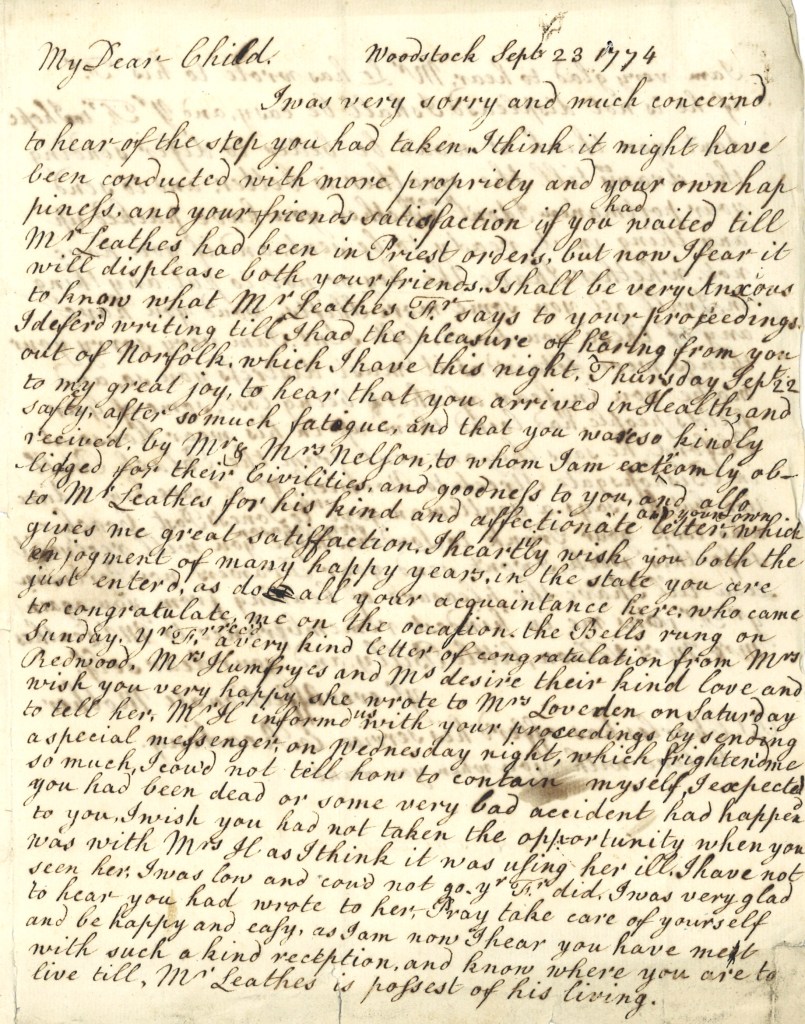 My Dear Child. Woodstock Sept 23 1774
I was very sorry and much concernd
to hear of the step you had taken. I think it might have
been conducted with more propriety and your own hap
piness. and your friends satisfaction if you had waited till
Mr Leathes had been in Priest orders, but now I fear it
will displease both your friends. I shall be very Anxious
to know what Mr Leathes Fr says to your proceedings.
I deferd writing till I had the pleasure of hearing from you
out of Norfolk. which I have this night. Thursday Sept 22
to my great joy, to hear that you arrived in Health, and
safty, after so much fatigue, and that you was so kindly
recived. by Mr & Mrs Nelson, to whom I am exteamly ob-
lidged for their Civilities, and goodness to you, and also
to Mr Leathes for his kind and affectionate and your own letter, which
gives me great satiffaction. I heartly wish you both the
enjoyment of many happy years, in the state you are
just enterd, as do all your acquaintance here, who came
to congratulate me on the occation. the Bells rung on
Sunday. Yr Fr reced a very kind letter of congratulation from Mrs
Redwood. Mrs Humfryes and Ms desire their kind love and
wish you very happy she wrote to Mrs Loveden on Saturday
to tell her. Mr H informd us with your proceedings by sending
a special messenger, on Wednesday night, which frightend me
so much, I coud not tell how to contain myself, I expected
you had been dead or some very bad accident had happend
to you. I wish you had not taken the opportunity when you
was with Mrs H as I think it was using her ill. I have not
seen her. I was low and coud not go. yr Fr did. I was very glad
to hear you had wrote to her. Pray take care of yourself
and be happy and easy, as I am now I hear you have met
with such a kind reception. and know where you are to
live till, Mr Leathes is possest of his living.